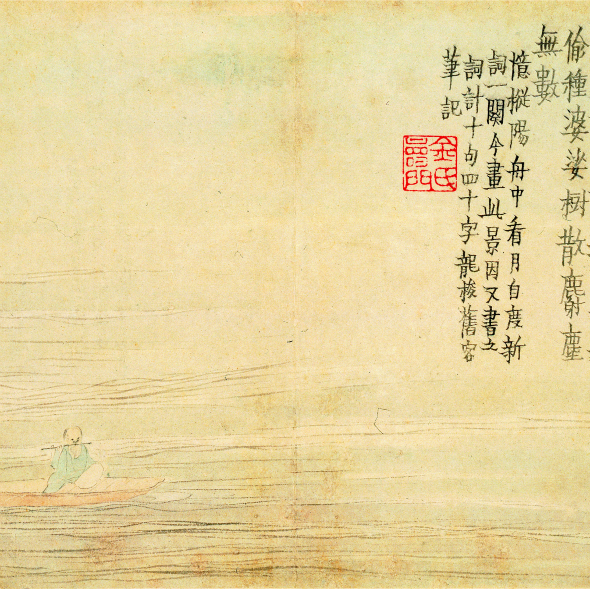 偷種婆娑樹散麝塵
無數
憶樅陽舟中看月自度新
詞一闋今畫此景因又書之
詞計十句四十字龍梭舊客
筆記
金氏
壽門